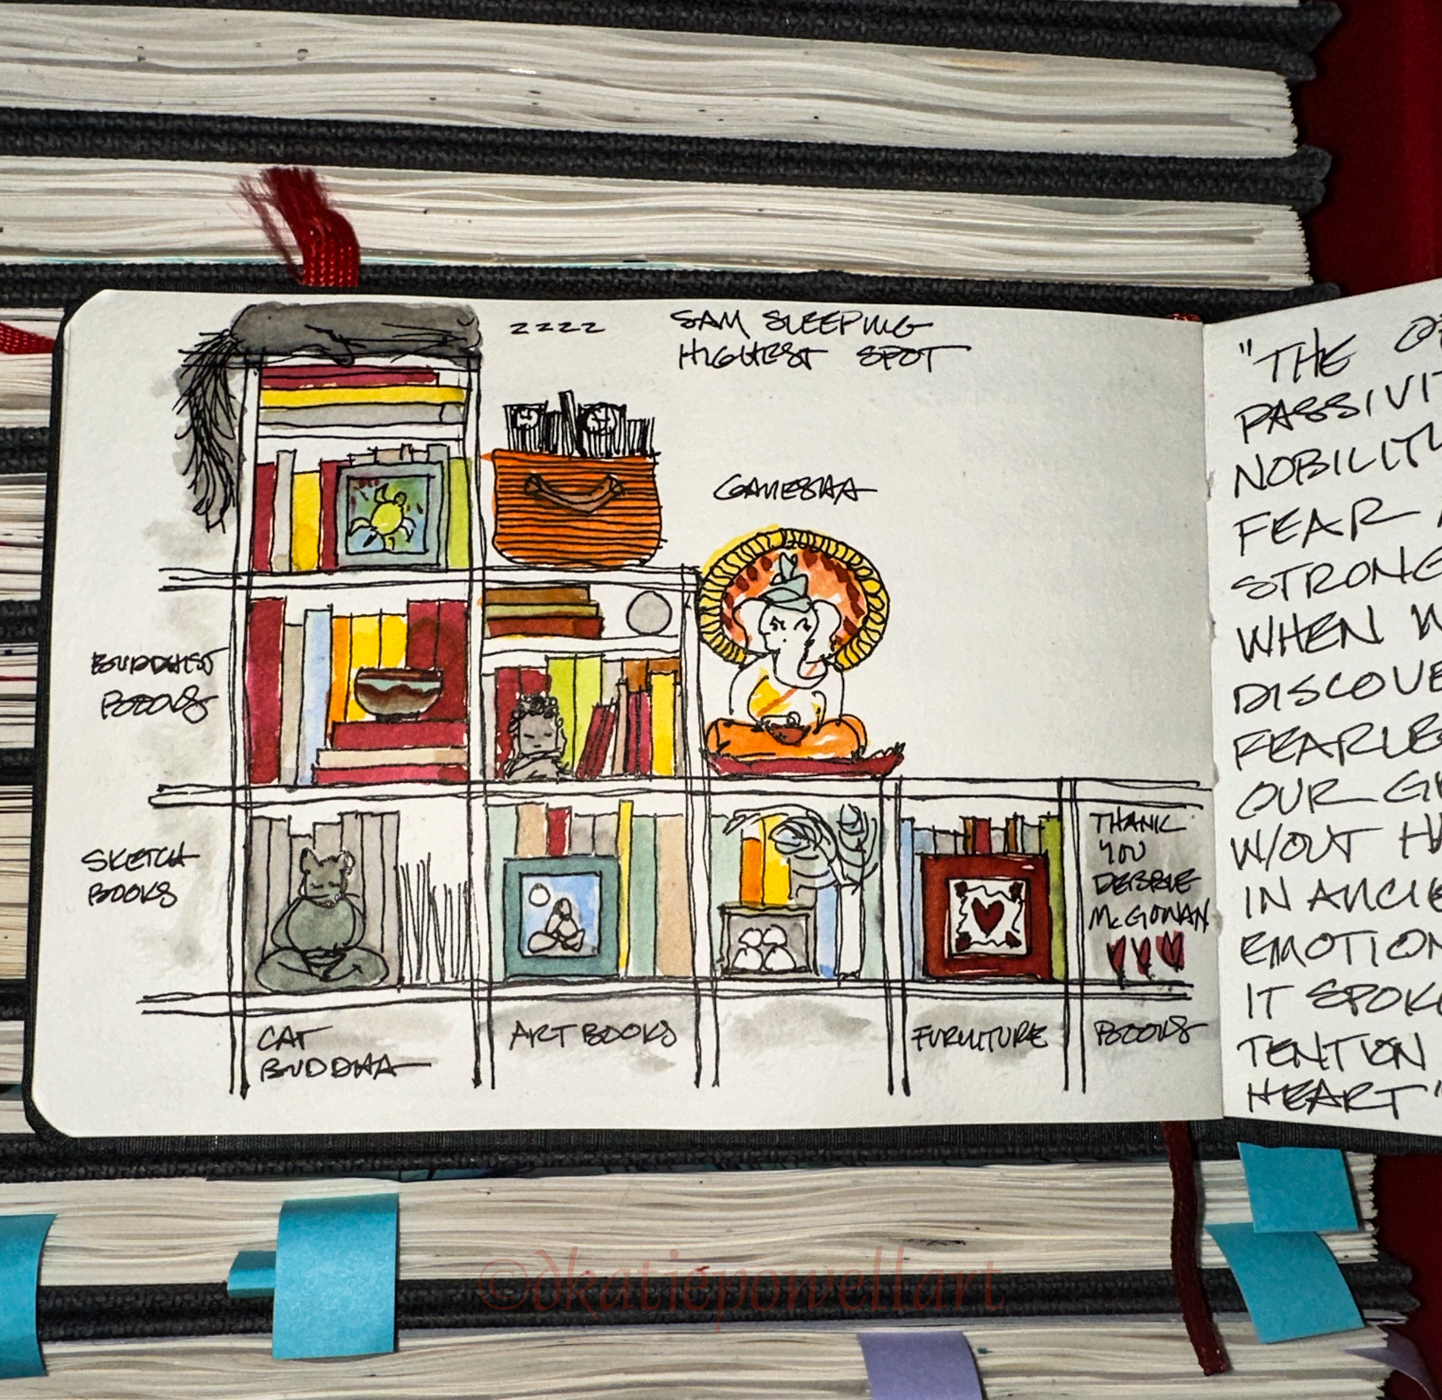 zzzz
SAM SLEEPING
HIGHEST SPOT
GANESHA
BUDDHIST
BOOKS
SKETCH
BOOKS
THANK
YOU
DEBBIE
McGOWAN
CAT
BUDDHA
ART BOOKS
FURNITURE
BOOKS
"THE
PASSIVIT
NOBILIT
FEAR
STRONG
WHEN W
DISCOVE
FEARLE
OUR G
W/OUT HA
IN ANCIE
EMOTION
IT SPOK
TENTION
HEART"
©dkatiepowellart